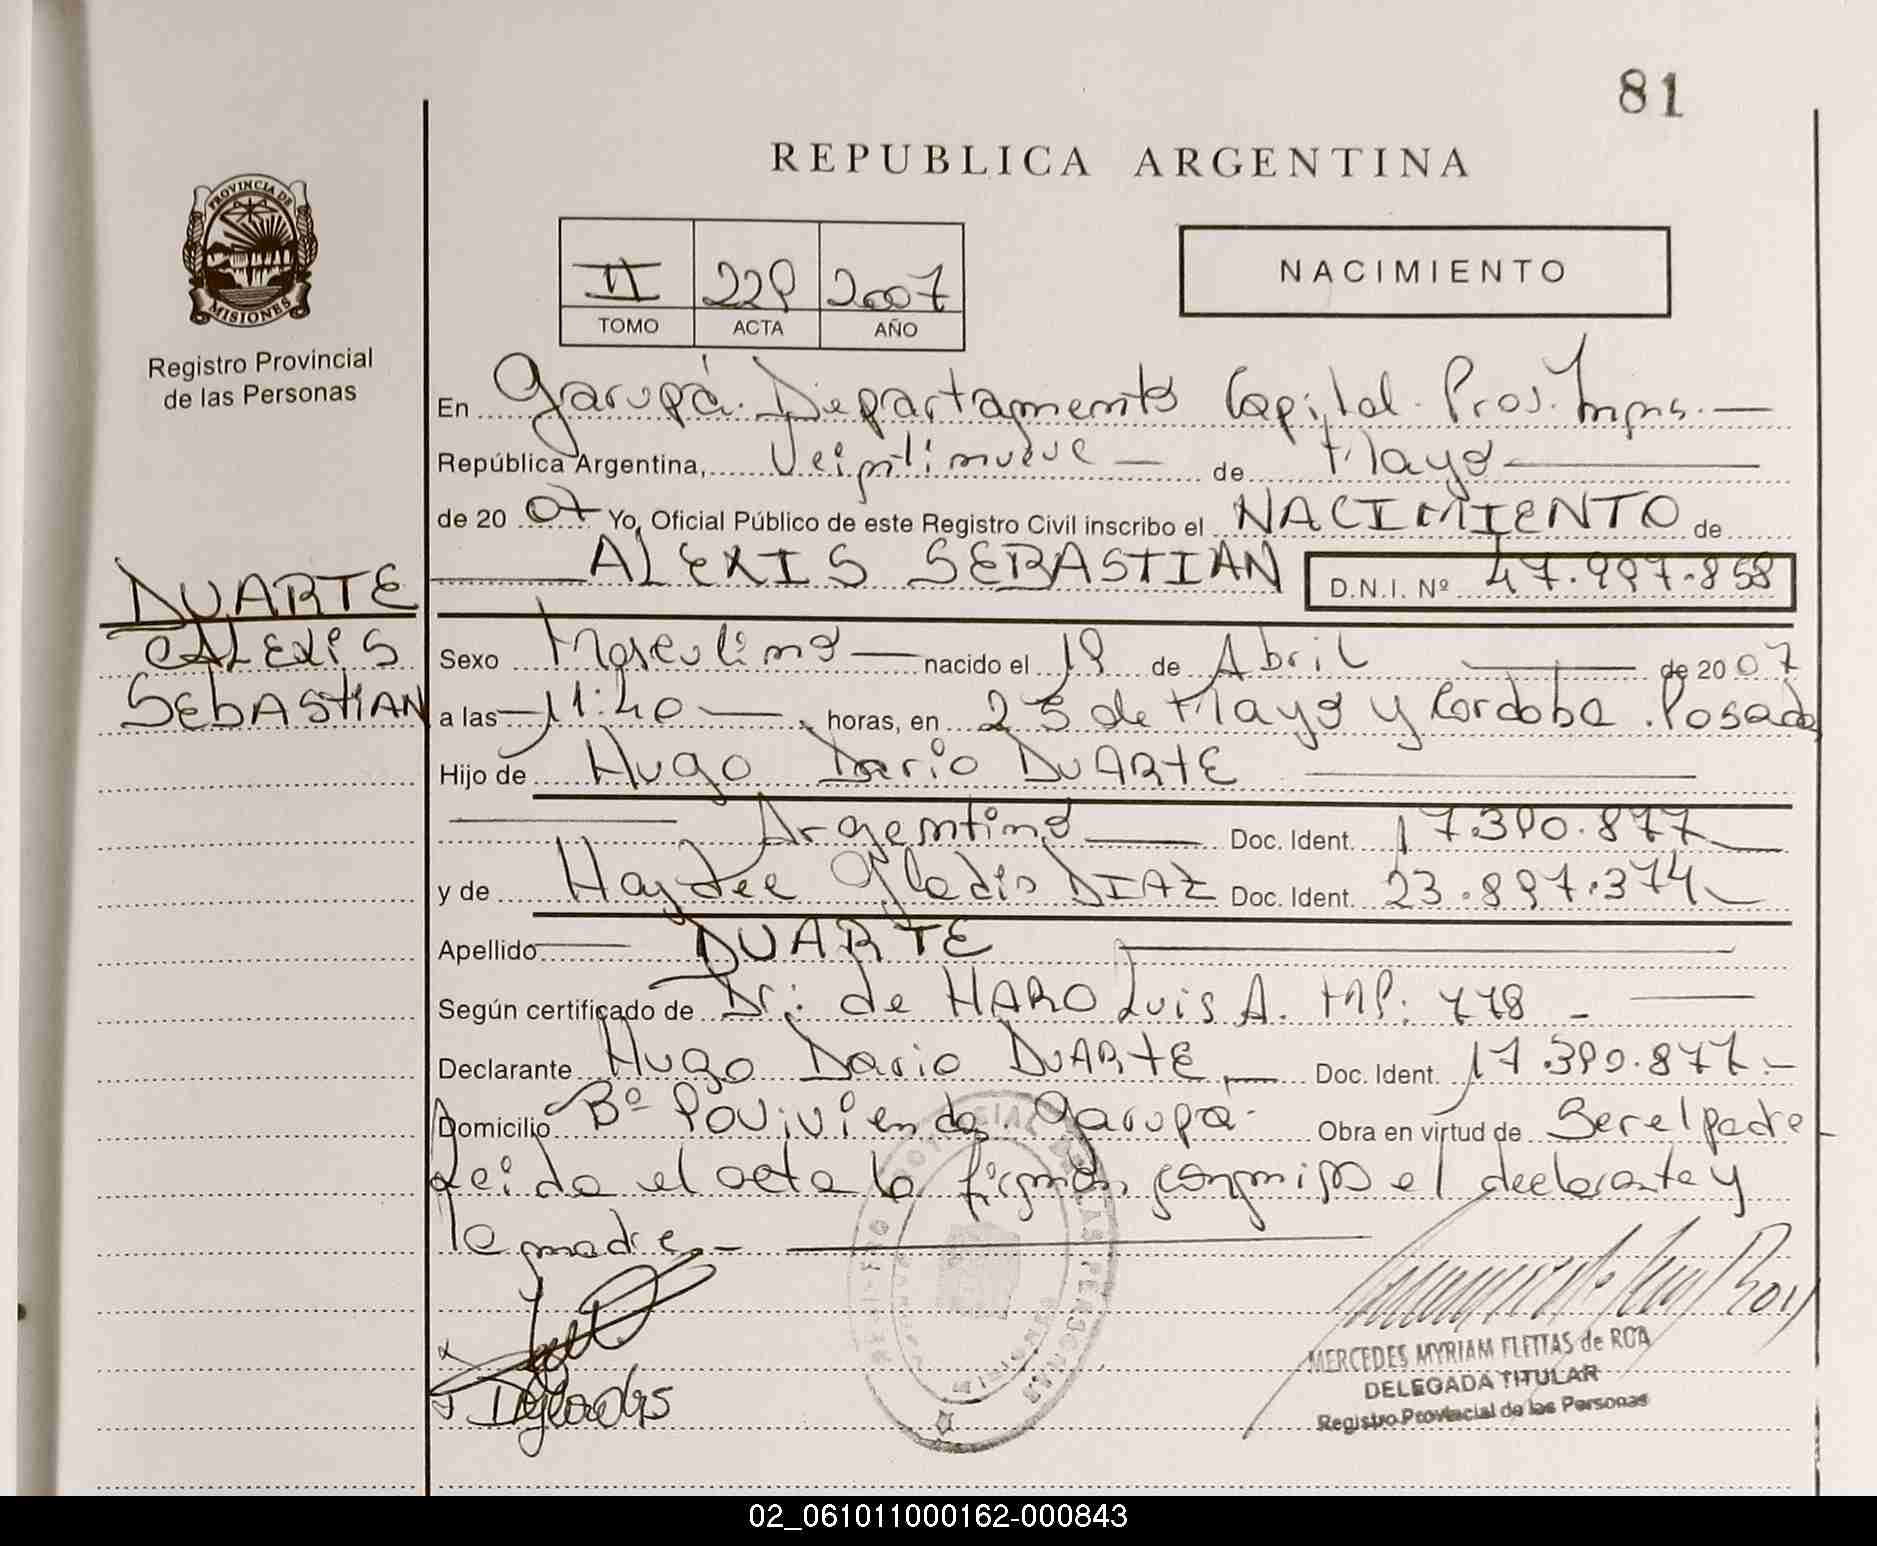 81
REPUBLICA ARGENTINA
PROVINCIA DE
MISIONES
Registro Provincial
de las Personas
II 229 2007
TOMO ACTA AÑO
NACIMIENTO
En Garupá Departamento Capital. Prov. Mnes.
República Argentina, Veintinueve de Mayo
de 2007 Yo, Oficial Público de este Registro Civil inscribo el NACIMIENTO de
ALEXIS SEBASTIAN D.N.I. Nº 47.997.858
DUARTE
ALEXIS
SEBASTIAN
Sexo Masculino nacido el 19 de Abril de 2007
a las 11:40 horas, en 25 de Mayo y Cordoba. Posadas
Hijo de Hugo Dario DUARTE
Argentino Doc. Ident. 17.390.877
y de Haydee Gladis DIAZ Doc. Ident. 23.897.374
Apellido DUARTE
Según certificado de Dr: de HARO Luis A. MP: 778 -
Declarante Hugo Dario DUARTE Doc. Ident. 17.390.877.-
Domicilio Bº Provivienda. Garupá. Obra en virtud de Ser el padre-
Leida el acta la firman conmigo el declarante y
la madre.-
MERCEDES MYRIAM FLEITAS de ROA
DELEGADA TITULAR
Registro Provincial de las Personas
02_061011000162-000843